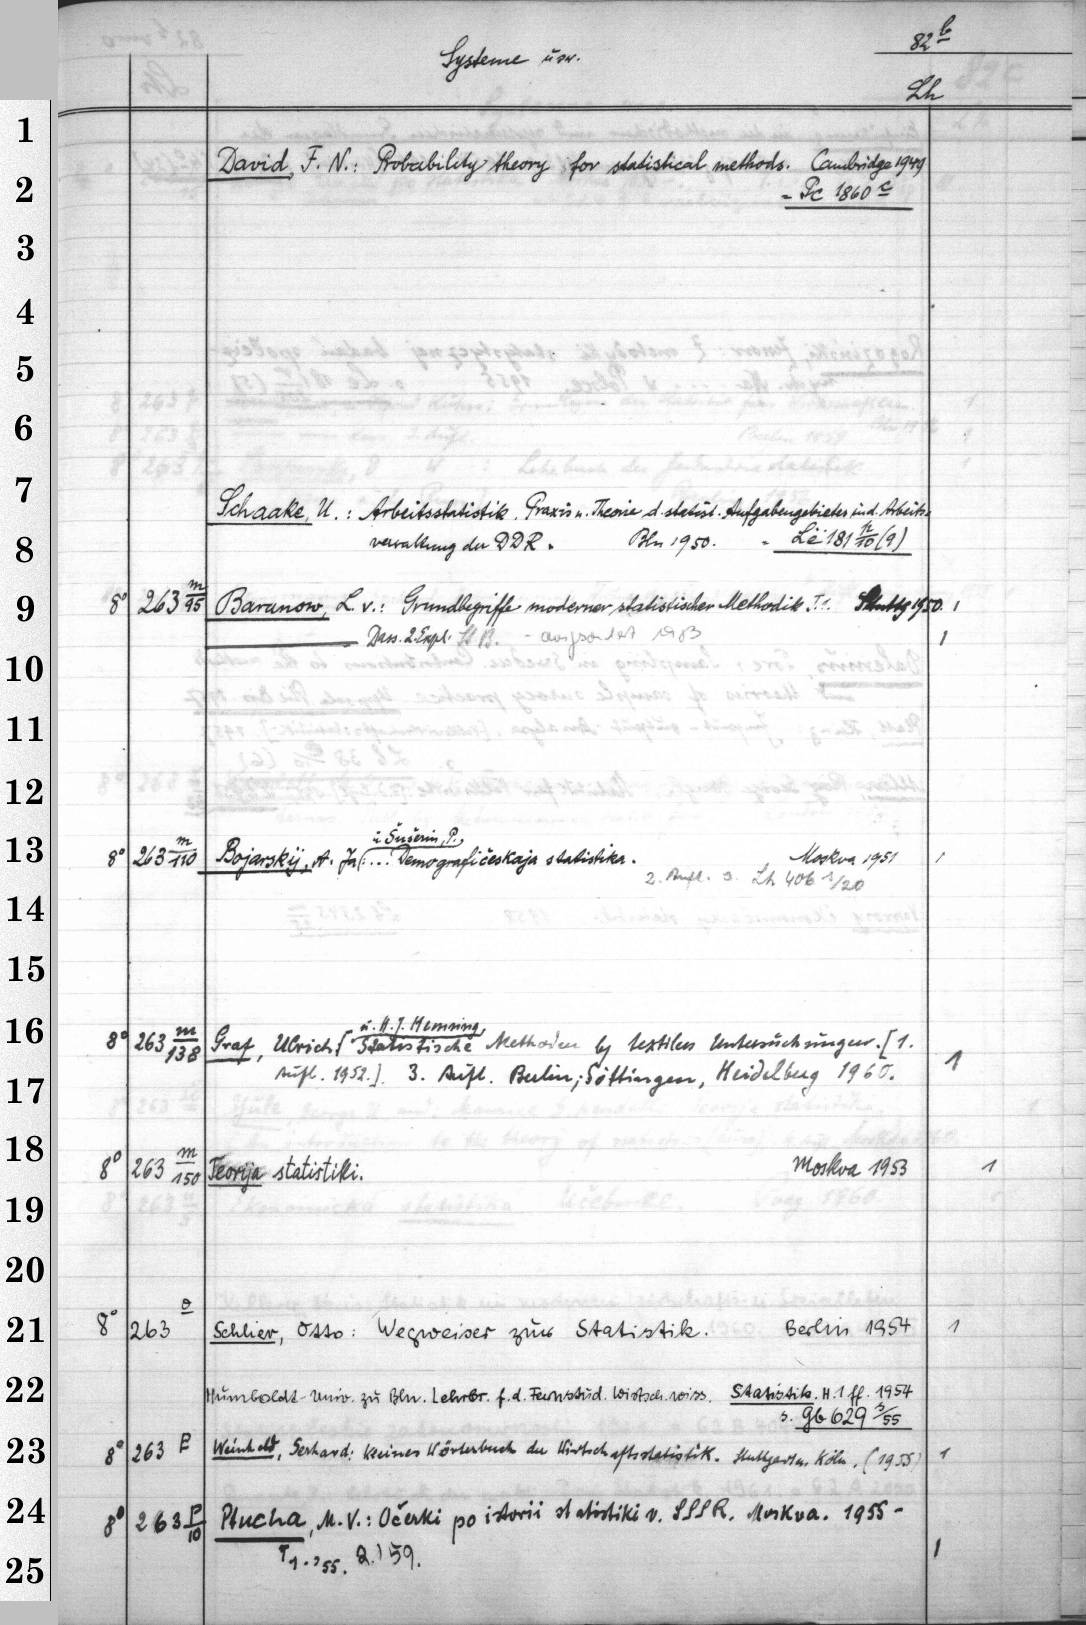 82 b
Systeme usw.
Lh
1
David, F. N.: Probability theory for statistical methods. Cambridge 1949
2
= Pc 1860 c
3
4
5
6
7
Schaake, U.: Arbeitsstatistik. Praxis u. Theorie d. statist. Aufgabengebietes in d. Arbeits-
8
verwaltung der DDR. Bln 1950. = Lë 181 n/10 (9)
9
8° 263 m/95 Baranow, L. v.: Grundbegriffe moderner statistischer Methodik T. 1. Stuttg 1950. 1
Dass. 2. Expl. - ausgesondert 1983 1
10
11
12
u. Šušerin, P.,
13
8° 263 m/110 Bojarskij, A. Ja.: ... Demografičeskaja statistika. Moskva 1951 1
2. Aufl. s. Lh 406 s/20
14
15
16
u. H. J. Henning,
8° 263 m/138 Graf, Ulrich: Statistische Methoden bei textilen Untersuchungen. [1.
17
Aufl. 1952.] 3. Aufl. Berlin, Göttingen, Heidelberg 1960. 1
18
8° 263 m/150 Teorija statistiki. Moskva 1953 1
19
20
21
8° 263 o Schlier, Otto: Wegweiser zur Statistik. Berlin 1954 1
22
Humboldt-Univ. zu Bln. Lehrbr. f. d. Fernstud. Wirtsch. wiss. Statistik. H. 1 ff. 1954
s. Gb 629 s/55
23
8° 263 p Weinhold, Gerhard: Kleines Wörterbuch der Wirtschaftsstatistik. Stuttgart u. Köln. (1955) 1
24
8° 263 p/10 Ptucha, M. V.: Očerki po istorii statistiki v. SSSR. Moskva. 1955 -
25
T 1. '55. 2.) 59. 1